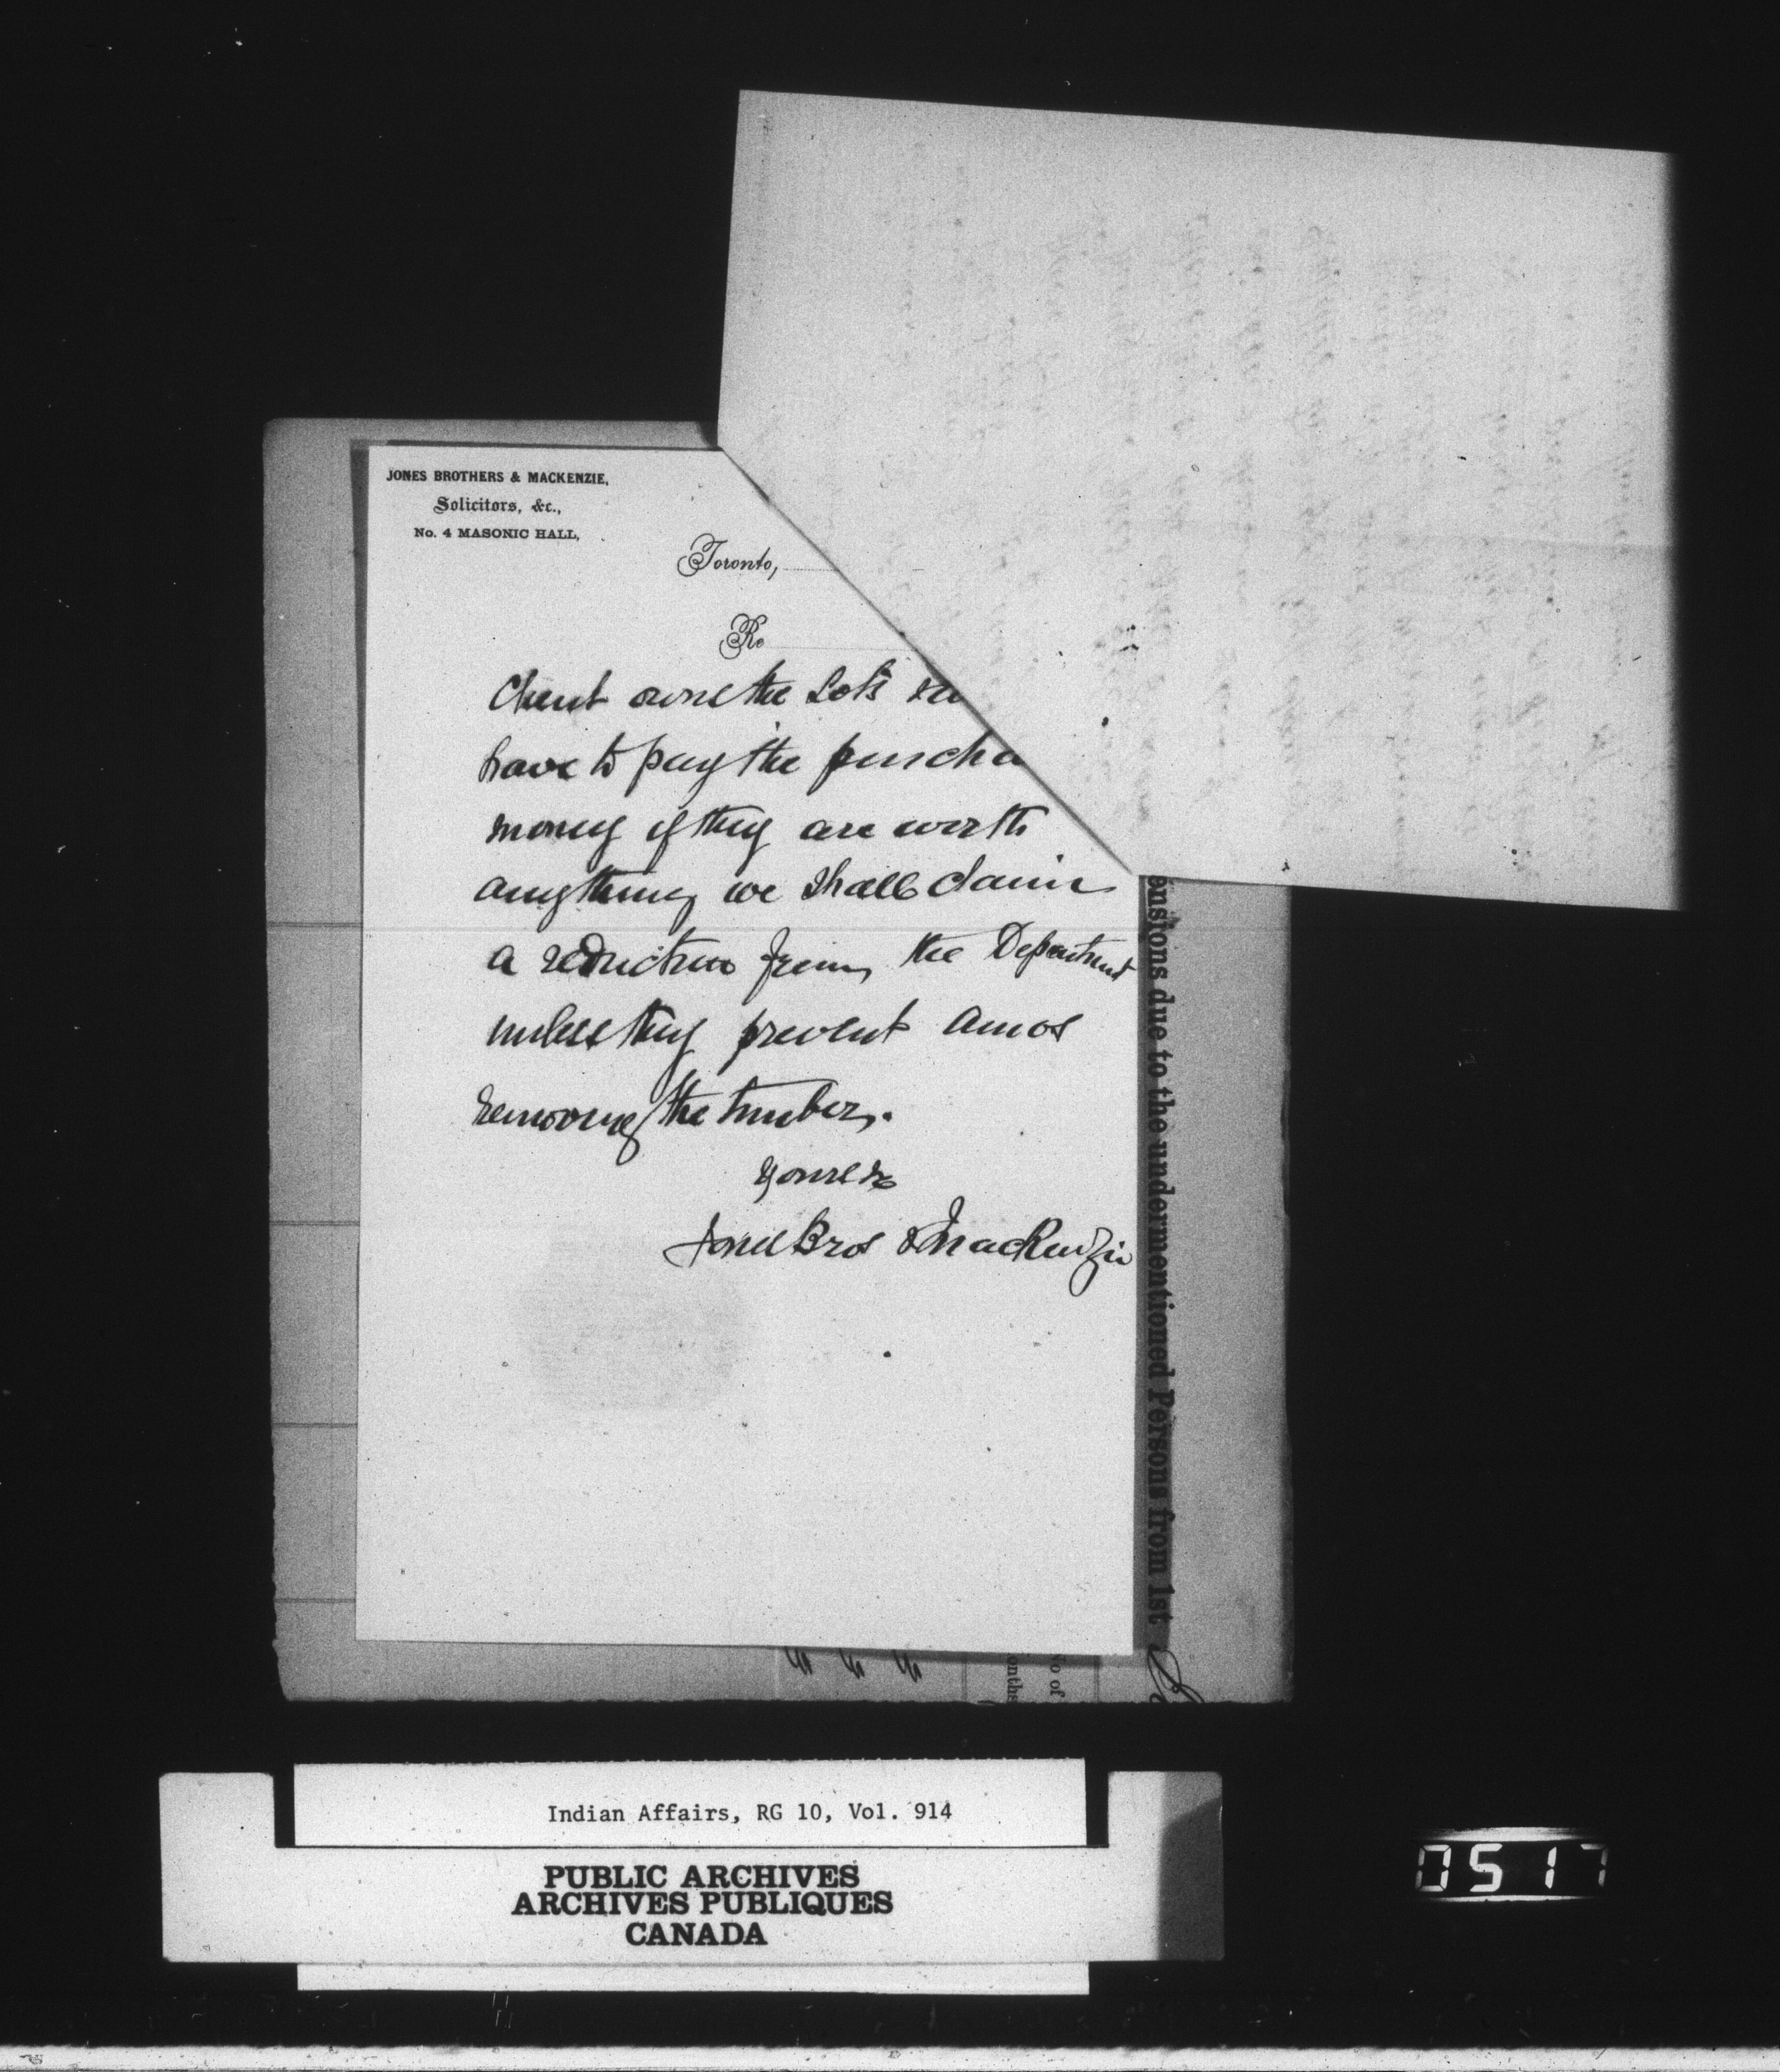 JONES BROTHERS & MACKENZIE,
Solicitors, &c.,
No. 4 MASONIC HALL,
Toronto,
Re
Client owns the Lots &
have to pay the purcha
money if they are worth
anything we shall claim
a reduction from the Department
unless they prevent Amos
removing the timber.
Yours &c
Jones Bros & MacKenzie
ensions due to the undermentioned Persons from 1st
No of
onths
Indian Affairs, RG 10, Vol. 914
PUBLIC ARCHIVES
ARCHIVES PUBLIQUES
CANADA
0517